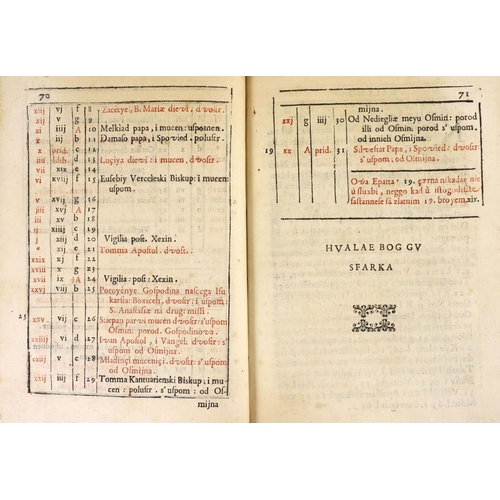 70
xiij vj f 8 Zacetye, B. Mariæ dievi. dvostr.
xij v g 9
xj iiij A 10 Melkiad papa, i mucen: uspomen.
x iij b 11 Damaso papa, i Spovied. polustr.
prid. c 12
iiij Idib. d 13 Luciya dievi: i mucen: dvostr.
vij xix e 14
vj xviij f 15 Eusebiy Verceleski Biskup: i mucen:
uspom.
v xvij g 16
iiij xvj A 17
iij xv b 18
ij xiiij c 19
j xiij d 20 Vigilia post. Xexin.
* xij e 21 Tomma Apostol. dvostr.
xxix xj f 22
xviij x g 23
xvij ix A 24 Vigilia. post: Xexin.
xxvj viij b 25 Poroyenye Gospodina nascega Isu
karsa: Boxicch. dvostr: i uspom:
S. Anastasiæ na drug: missi.
25 xxv. vij c 26 Stiepan parvi mucen dvostr: s'uspom
Osmin: porod. Gospodinova.
xxiiij vj d 27 Ivan Apostol, i Vangel: dvostr: s'uspom
od Osmijna.
xxiij v c 28 Mladinçi muceniçi. dvostr: s'uspom
od Osmijna.
xxij iiij f 29 Tomma Kantuarienski Biskup: i mu-
cen: polustr. s'uspom: od Os-
mijna
71
mijna.
xxj g iiij 30 Od Nedieglie meyu Osmin: porod
illi od Osmin: porod s'uspom.
od innieh Osmijna.
19 xx A prid. 31 Silvestar Papa, i Spovied: dvostr
s'uspom, od Osmijna.
Ova Epatta 19. çarna nikadar nie
ù sluxbi, neggo kad ù istogodiscte
sastannese sà zlatnim 19. broyem xix.
HVALAE BOG GV
SFARKA